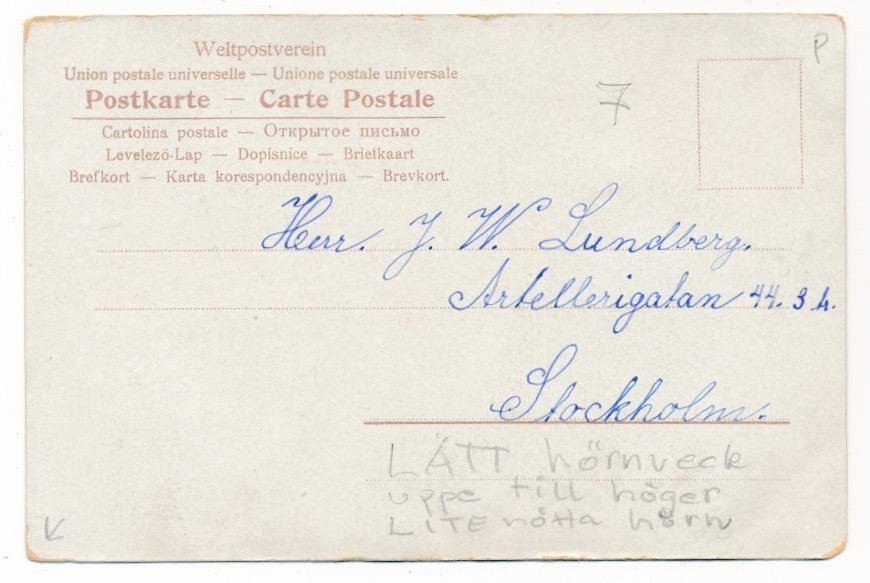 Weltpostverein
Union postale universelle — Unione postale universale
Postkarte — Carte Postale
Cartolina postale — Открытое письмо
Levelező-Lap — Dopisnice — Briefkaart
Brefkort — Karta korespondencyjna — Brevkort.
P
7
Herr. J. W. Lundberg.
Artellerigatan 44. 3 h.
Stockholm.
LÄTT hörnveck
uppe till höger
LITE nötta hörn
V